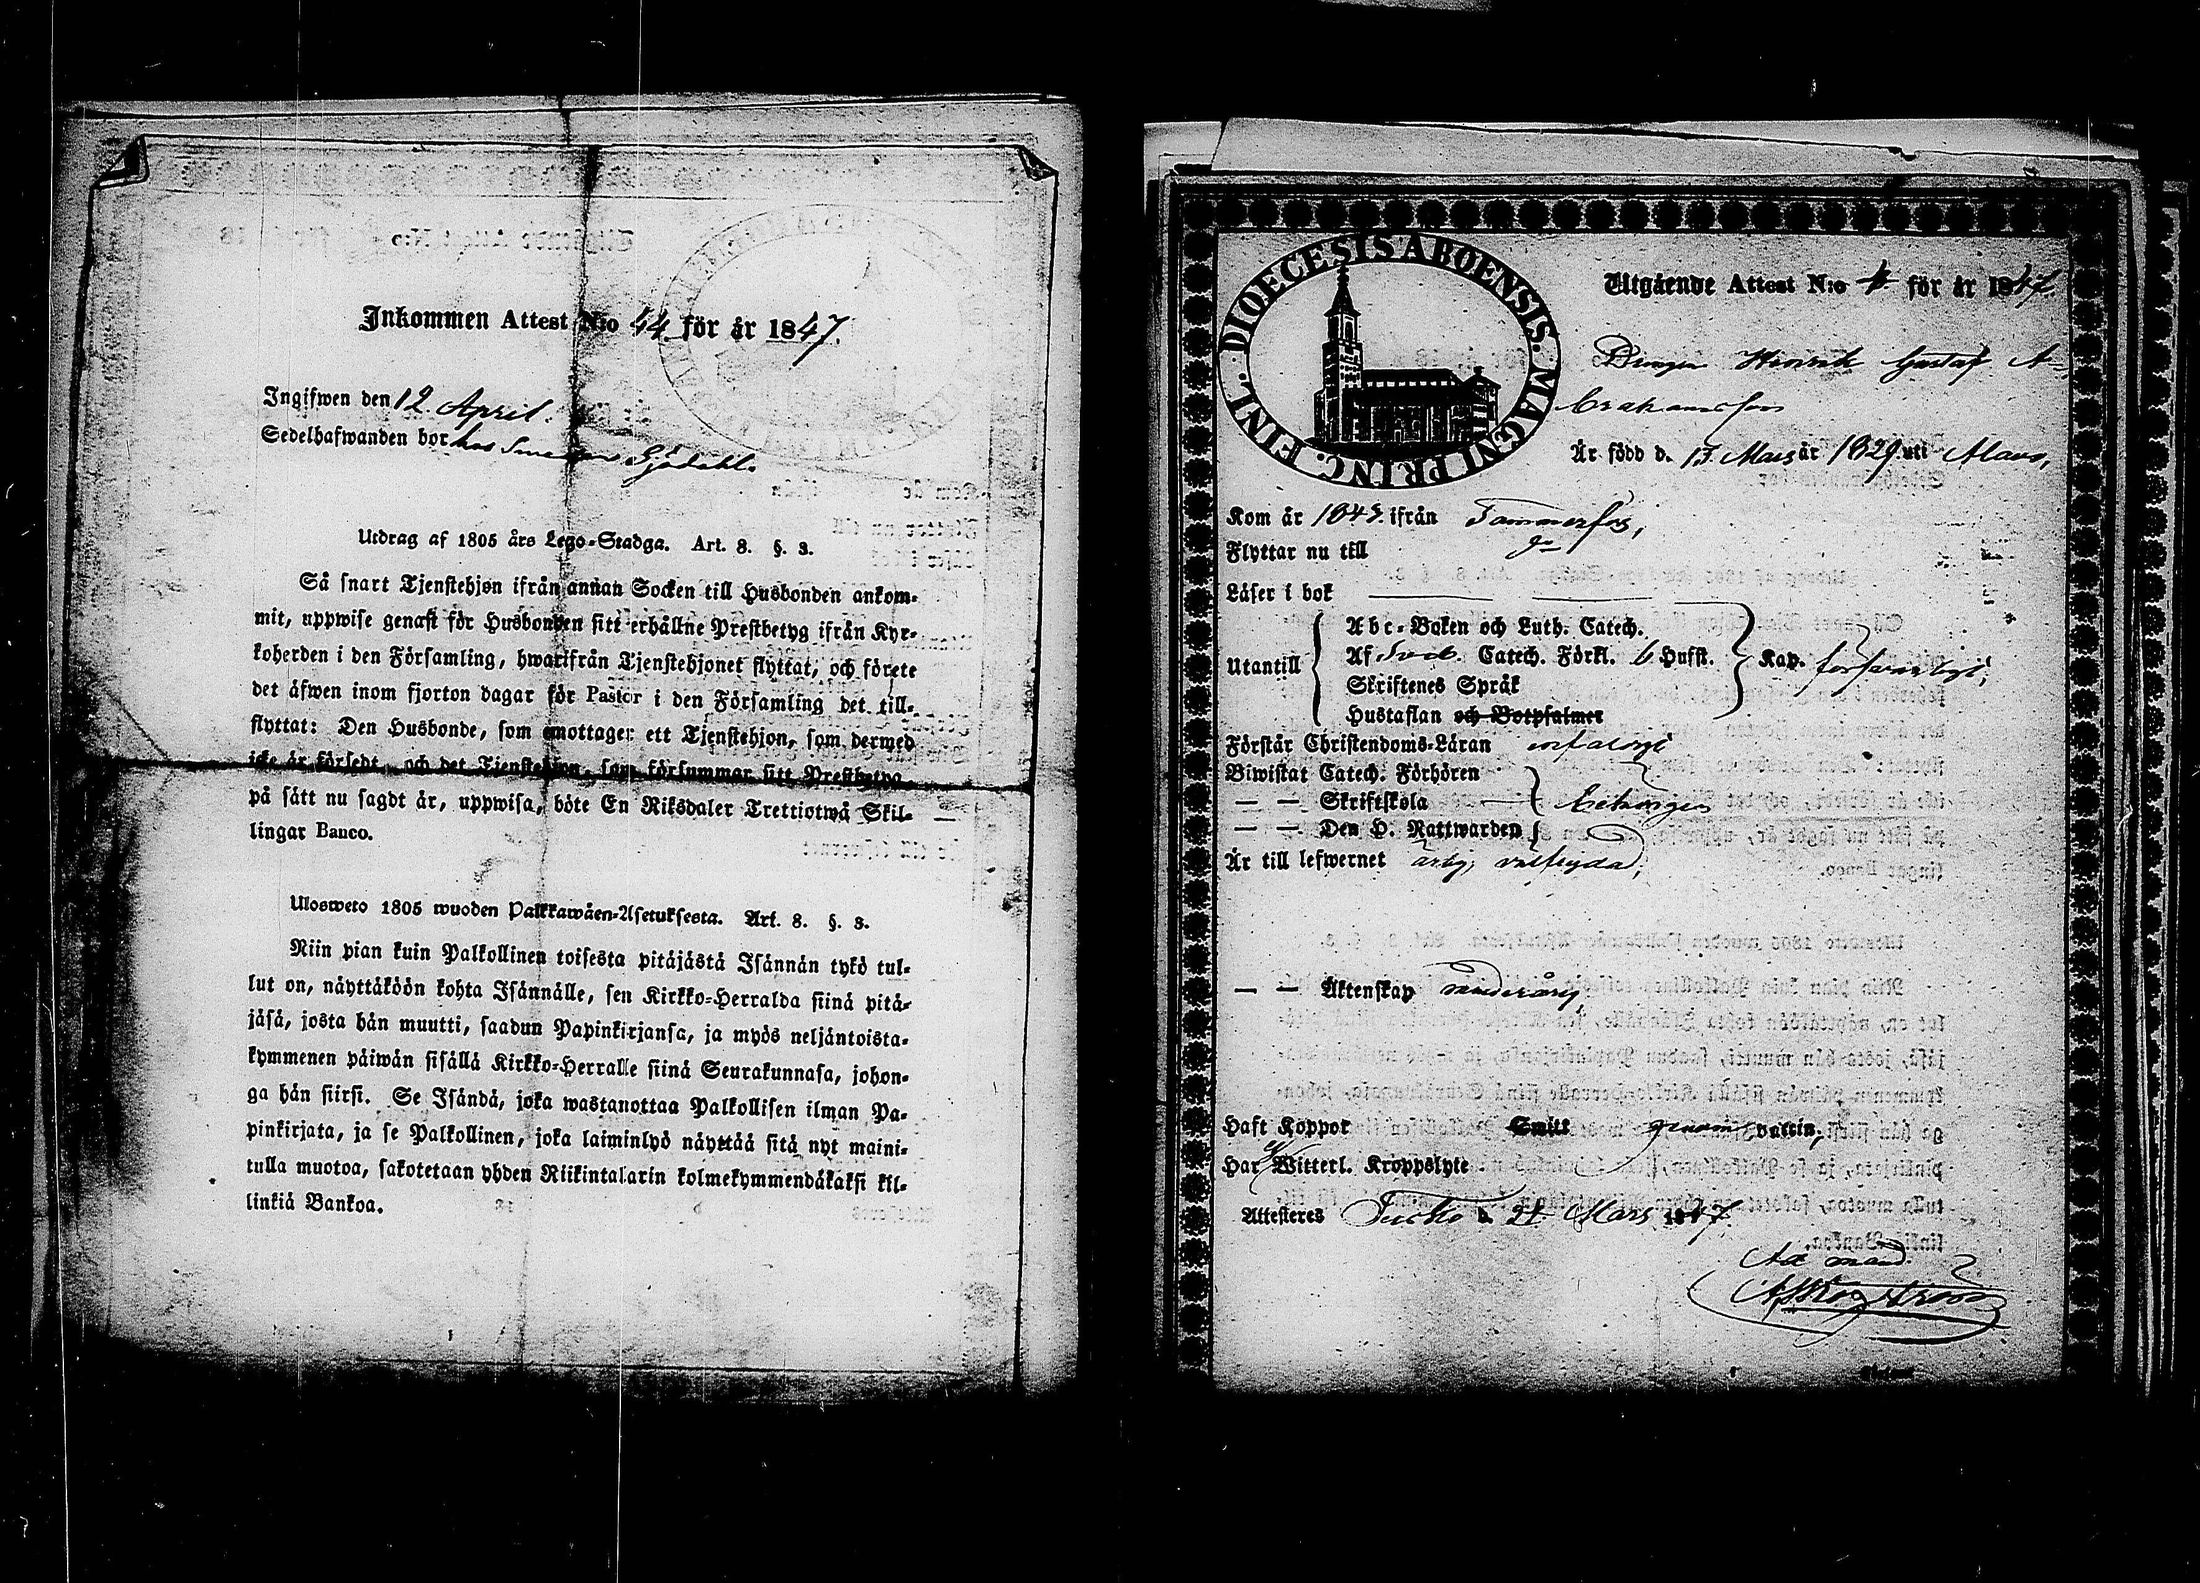 Inkommen Attest N:o 44 för år 1847.
Ingifwen den 12. April.
Sedelhafwanden bor hos Sjödahl.
Utdrag af 1805 års Lego-Stadga. Art. 8. §. 3.
Så snart Tjenstehjon ifrån annan Socken till Husbonden ankom-
mit, uppwise genast för Husbonden sitt erhållne Prestbetyg ifrån Kyr-
koherden i den Församling, hwarifrån Tjenstehjonet flyttat, och förete
det äfwen inom fjorton dagar för Pastor i den Församling det till-
flyttat: Den Husbonde, som emottager ett Tjenstehjon, som dermed
icke är försedt, och det Tjenstehjon, som försummar sitt Prestbetyg
på sätt nu sagdt är, uppwisa, böte En Riksdaler Trettiotwå Skil-
lingar Banco.
Ulosweto 1805 wuoden Palkkawäen-Asetuksesta. Art. 8. §. 3.
Niin pian kuin Palkollinen toisesta pitäjästä Isännän tykö tul-
lut on, näyttäköön kohta Isännälle, sen Kirkko-Herralda siinä pitä-
jäsä, josta hän muutti, saadun Papinkirjansa, ja myös neljäntoista-
kymmenen päiwän sisällä Kirkko-Herralle siinä Seurakunnasa, johon-
ga hän siirsi. Se Isändä, joka wastanottaa Palkollisen ilman Pa-
pinkirjata, ja se Palkollinen, joka laiminlyö näyttää sitä nyt maini-
tulla muotoa, sakotetaan yhden Riikintalarin kolmekymmendäkaksi kil-
linkiä Bankoa.
DIOECESIS ABOENSIS. MAGNI PRINC. FINL.
Utgående Attest N:o 4 för år 1847.
Drengen Henrik Gustaf A-
brahamsson
Är född d. 13. Mars år 1829 uti Alavo,
Kom år 1845. ifrån Tammerfors,
Flyttar nu till
Läser i bok
Utantill
Abc-Boken och Luth. Catech.
Af Sveb. Catech. Förkl. 6 Hufst.
Skriftenes Språk
Hustaflan och Botpsalmer
Kap. försvarligt,
Förstår Christendoms-Läran
Biwistat Catech. Förhören
— — Skriftskola
— — Den H. Nattwarden
behörigen
Är till lefwernet ärlig, välfrejdad,
— — Äktenskap
Haft Koppor Smitt genom vaccin,
Har ej Witterl. Kroppslyte
Attesteres d. 21 Mars 1847.
Ad mand.